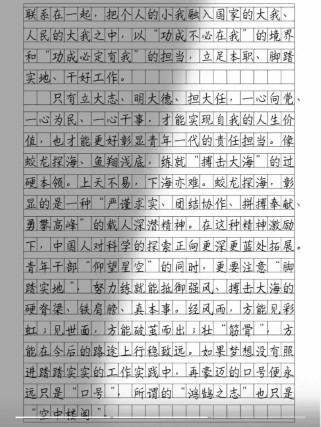 联系在一起，把个人的小我融入国家的大我、
人民的大我之中，以“功成不必在我”的境界
和“功成必定有我”的担当，立足本职、脚踏
实地、干好工作。
只有立大志、明大德、担大任，一心向党、
一心为民、一心干事，才能实现自我的人生价
值，也才能更好彰显青年一代的责任担当。像
蛟龙探海、鱼翔浅底，练就“搏击大海”的过
硬本领。上天不易，下海亦难。蛟龙探海，彰
显的是一种“严谨求实、团结协作、拼搏奉献、
勇攀高峰”的载人深潜精神。在这种精神激励
下，中国人对科学的探索正向更深更蓝处拓展。
青年干部“仰望星空”的同时，更要注意“脚
踏实地”，努力练就能抵御强风、搏击大海的
硬脊梁、铁肩膀、真本事。经风雨，方能见彩
虹；见世面，方能破茧而出；壮“筋骨”，方
能在今后的路途上行稳致远。如果梦想没有照
进踏踏实实的工作实践中，再豪迈的口号便永
远只是“口号”，所谓的“鸿鹄之志”也只是
“空中楼阁”。